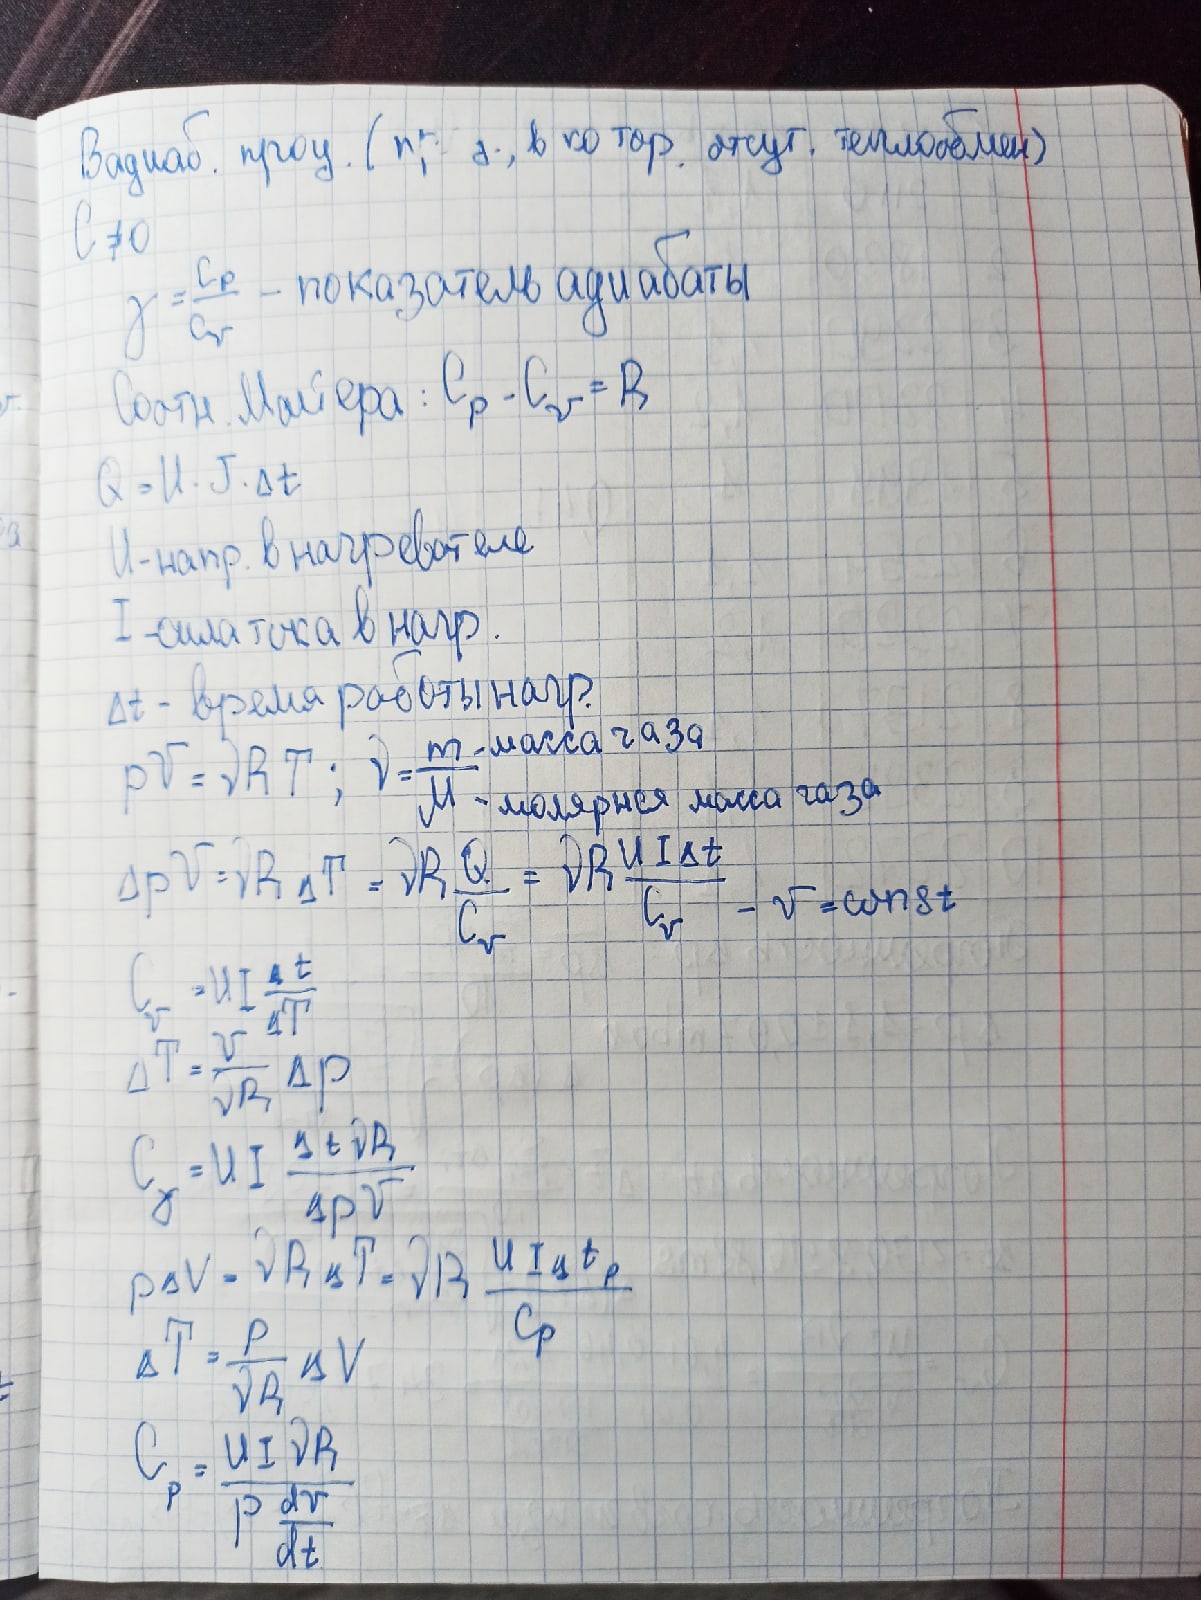 В адиаб. проц. (пр. , в котор. отсут. теплообмен)
C ≠ 0
γ = Cp/Cv - показатель адиабаты
Соотн. Майера: Cp - Cv = R
Q = U · J · Δt
U - напр. в нагревателе
I - сила тока в нагр.
Δt - время работы нагр.
pV = νRT ; ν = m/M m - масса газа
M - молярная масса газа
ΔpV = νRΔT = νR Q/Cv = νR UIΔt/Cv - V = const
Cv = UI Δt/ΔT
ΔT = V/νR Δp
Cγ = UI ΔtνR/ΔpV
pΔV = νRΔT = νR UIΔtp/Cp
ΔT = P/νR ΔV
Cp = UIνR/(P dV/dt)